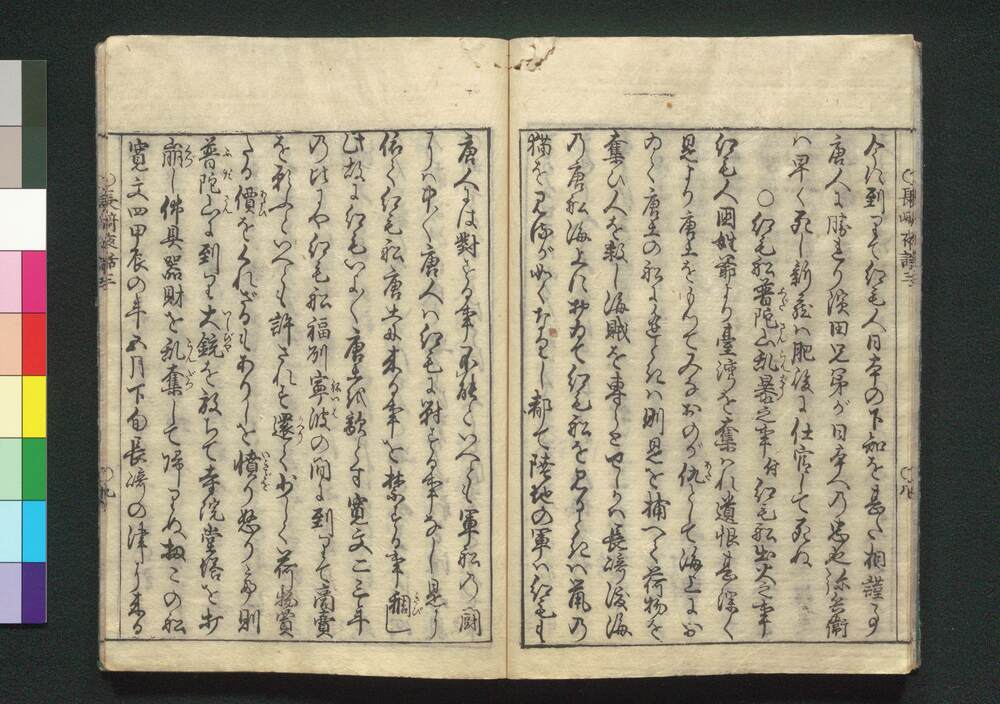 今に到りて紅毛人日本の下知を甚だ相謹る事
唐人に勝れり濱田兄弟が日本人の忠也弥兵衛
ハ早く死し新蔵ハ肥後に仕官して死ぬ
○紅毛船普陀山乱暴之事付紅毛船出火之事
紅毛人国姓爺より臺湾を奪ハれ遺恨甚深く
是より唐土をもつてみなおのが仇として海上に
ゐて唐土の船に逢ときハ則是を捕へて荷物を
奪ひ人を殺し海賊を専らとせしハ長崎渡海
乃唐船海上に於て紅毛船を見るときハ鼠乃
猫を見るが如くなるべし都て陸地の軍ハ紅毛も
唐人にハ對する事不能といへども軍船乃闘
にハ中々唐人ハ紅毛に對する事なし是に
依て紅毛船唐土に来る事を禁ずる事稠し
此故に紅毛いよ〱唐土を歎ず寛文二三年
乃比にや紅毛船福州寧波の间に到りて商賣
を願ふといへども許されず還て少しく荷物賣
たる價をくれざるもありしを憤り怒りて則
普陀山に到り大銃を放ちて寺院堂塔を打
崩し佛具器財を乱奪して帰りぬ扨この船
寛文四甲辰の年五月下旬長崎の津より来る